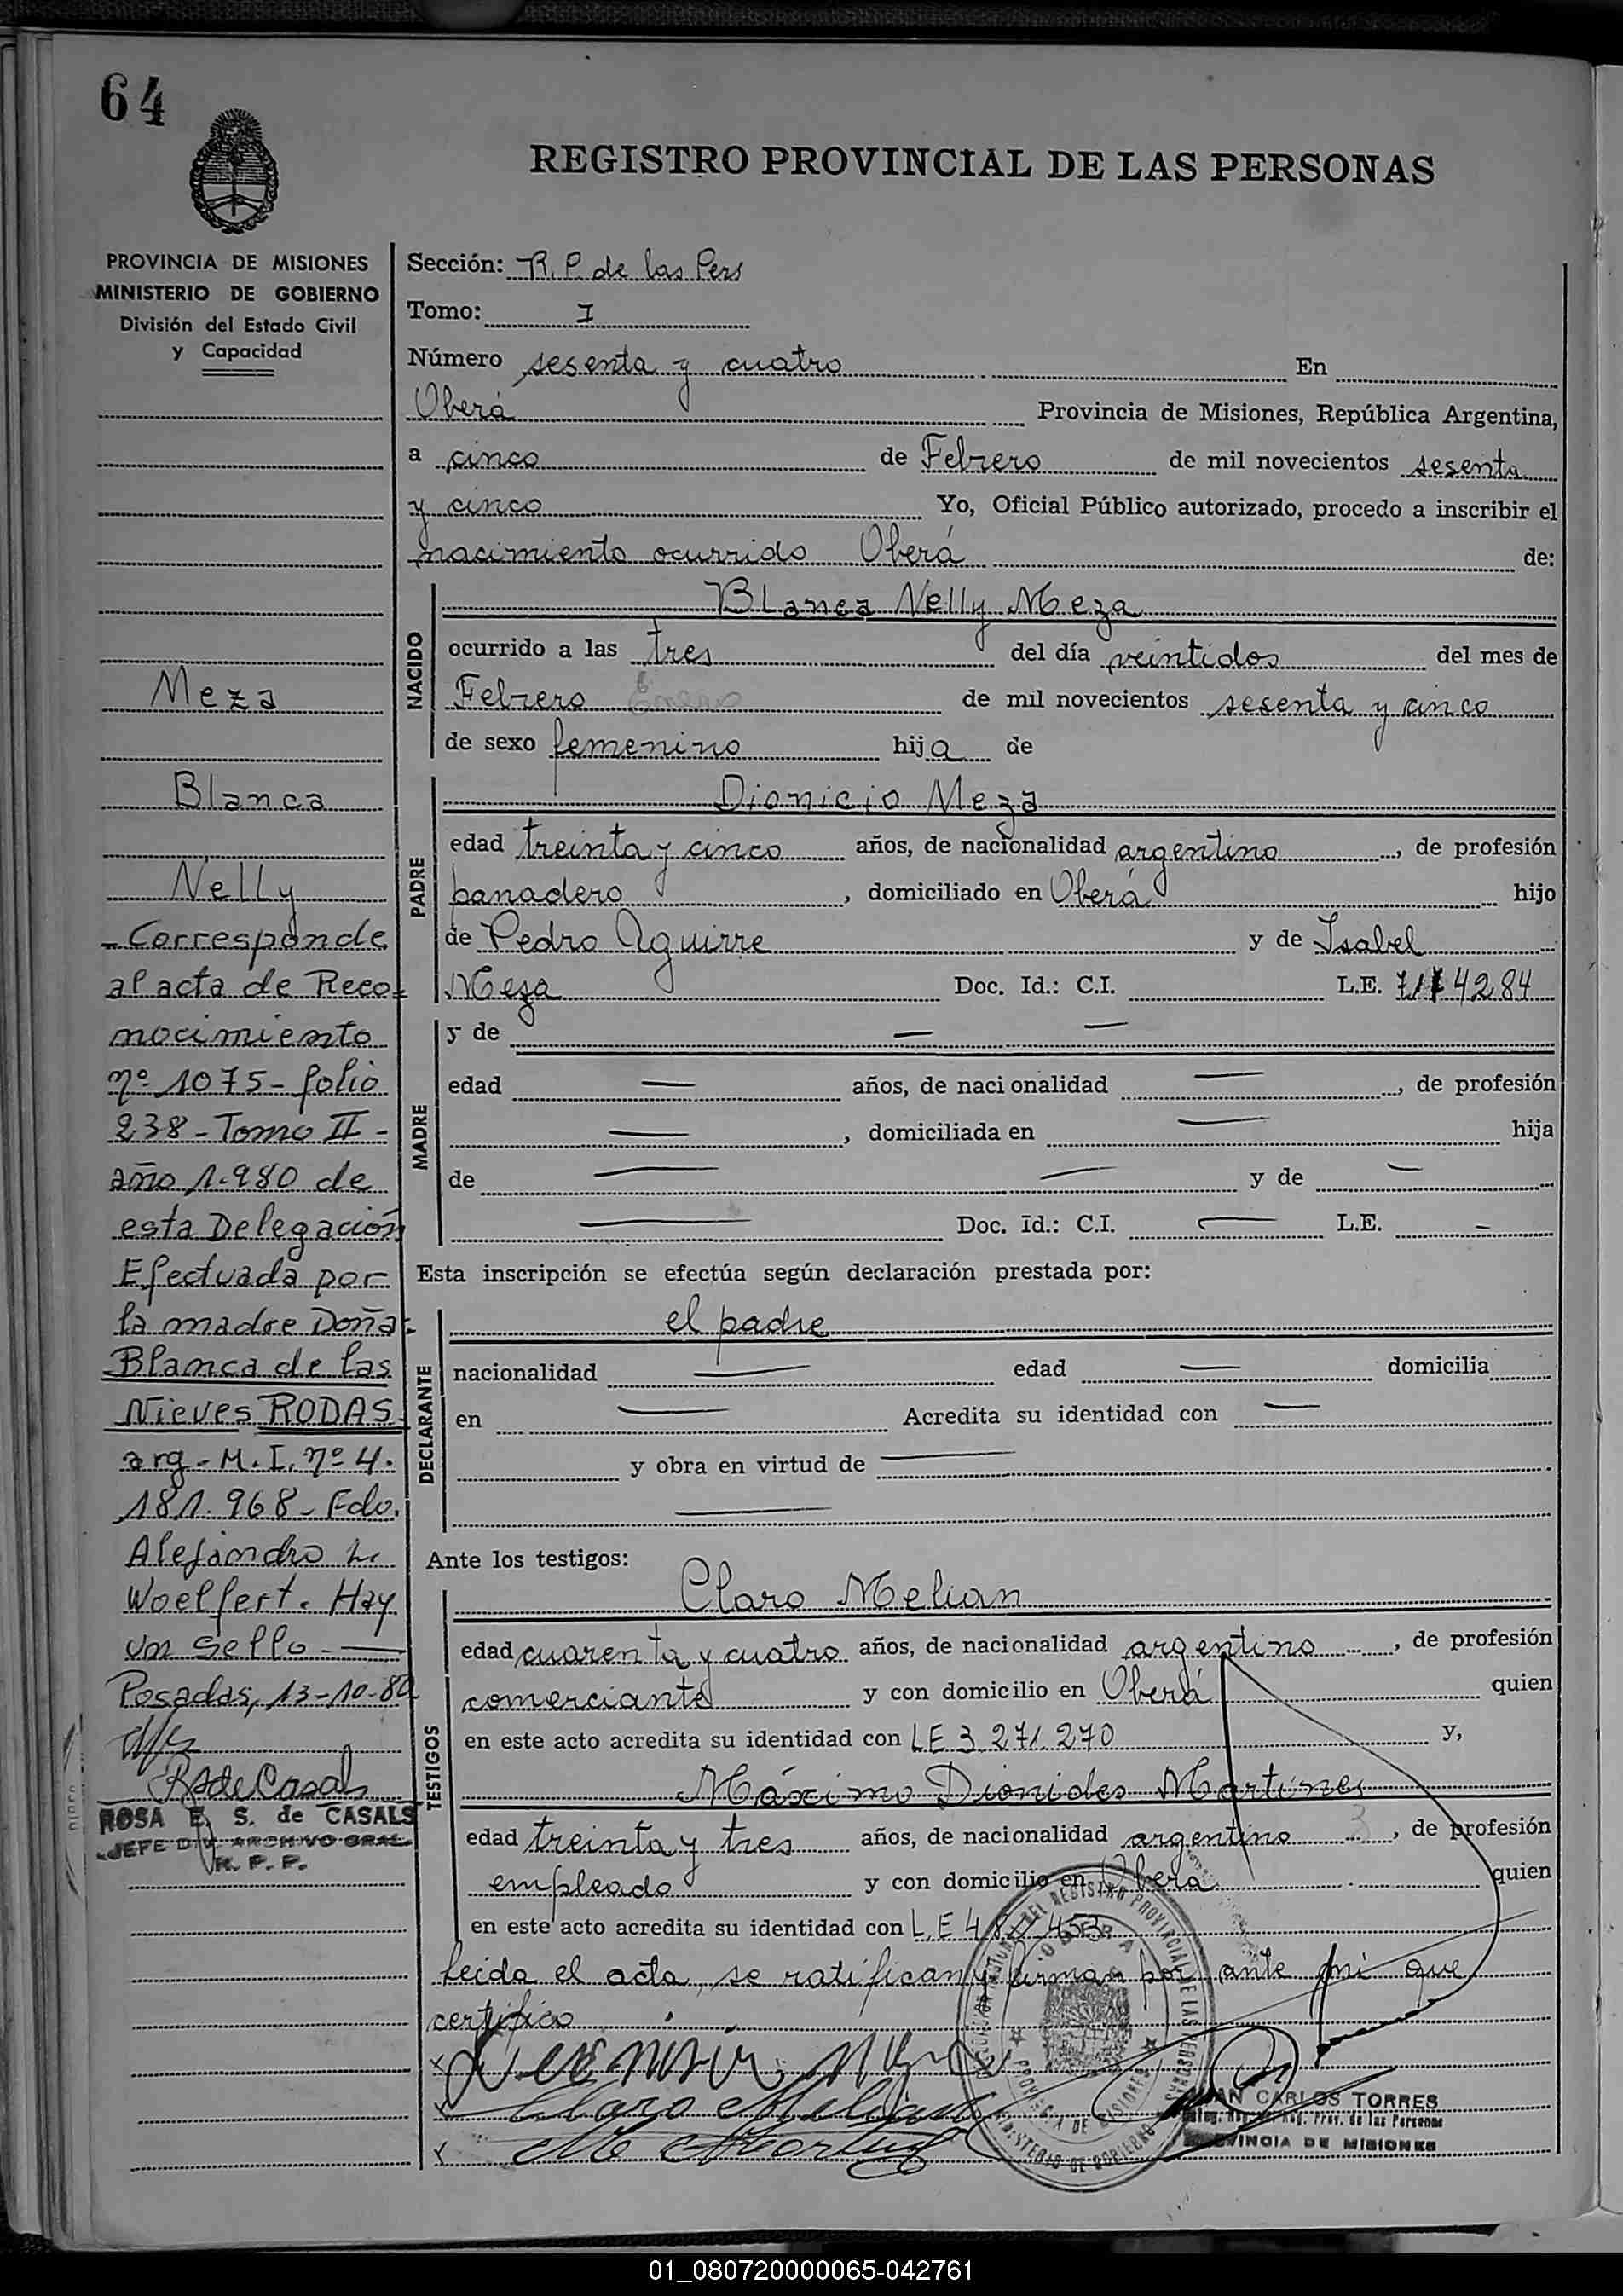 64
REGISTRO PROVINCIAL DE LAS PERSONAS
PROVINCIA DE MISIONES
MINISTERIO DE GOBIERNO
División del Estado Civil
y Capacidad
Meza
Blanca
Nelly
- Corresponde
al acta de Reco=
nocimiento
nº 1075 - folio
238 - Tomo II -
año 1.980 de
esta Delegación
Efectuada por
la madre Doña:
Blanca de las
Nieves RODAS.
arg - M. I. nº 4.
181.968 - Fdo.
Alejandro L.
Woelfert. Hay
un sello -
Posadas, 13-10-80
RSdeCasals
ROSA E. S. de CASALS
JEFE DIV. ARCHIVO GRAL.
R. P. P.
Sección: R. P. de las Pers
Tomo: I
Número sesenta y cuatro En
Oberá Provincia de Misiones, República Argentina,
a cinco de Febrero de mil novecientos sesenta
y cinco Yo, Oficial Público autorizado, procedo a inscribir el
nacimiento ocurrido Oberá de:
NACIDO
Blanca Nelly Meza
ocurrido a las tres del día veintidos del mes de
Febrero Enero de mil novecientos sesenta y cinco
de sexo femenino hija de
PADRE
Dionicio Meza
edad treinta y cinco años, de nacionalidad argentino, de profesión
panadero, domiciliado en Oberá hijo
de Pedro Aguirre y de Isabel
Meza Doc. Id.: C.I. L.E. 4284
MADRE
y de — —
edad — años, de nacionalidad —, de profesión
—, domiciliada en — hija
de — — y de —
— Doc. Id.: C.I. — L.E. —
Esta inscripción se efectúa según declaración prestada por:
DECLARANTE
el padre
nacionalidad — edad — domicilia
en — Acredita su identidad con —
y obra en virtud de —
—
Ante los testigos:
TESTIGOS
Claro Melian
edad cuarenta y cuatro años, de nacionalidad argentino, de profesión
comerciante y con domicilio en Oberá quien
en este acto acredita su identidad con LE 3.271.270 y,
Máximo Dionides Martines
edad treinta y tres años, de nacionalidad argentino, de profesión
empleado y con domicilio en Oberá quien
en este acto acredita su identidad con L.E 453
leida el acta, se ratifican y firman por ante mi que
certifico
Claro Melian
JUAN CARLOS TORRES
Reg. Prov. de las Personas
PROVINCIA DE MISIONES
DEL REGISTRO PROVINCIAL DE LAS PERSONAS
OBERA
PROVINCIA DE MISIONES
MINISTERIO DE GOBIERNO
01_080720000065-042761